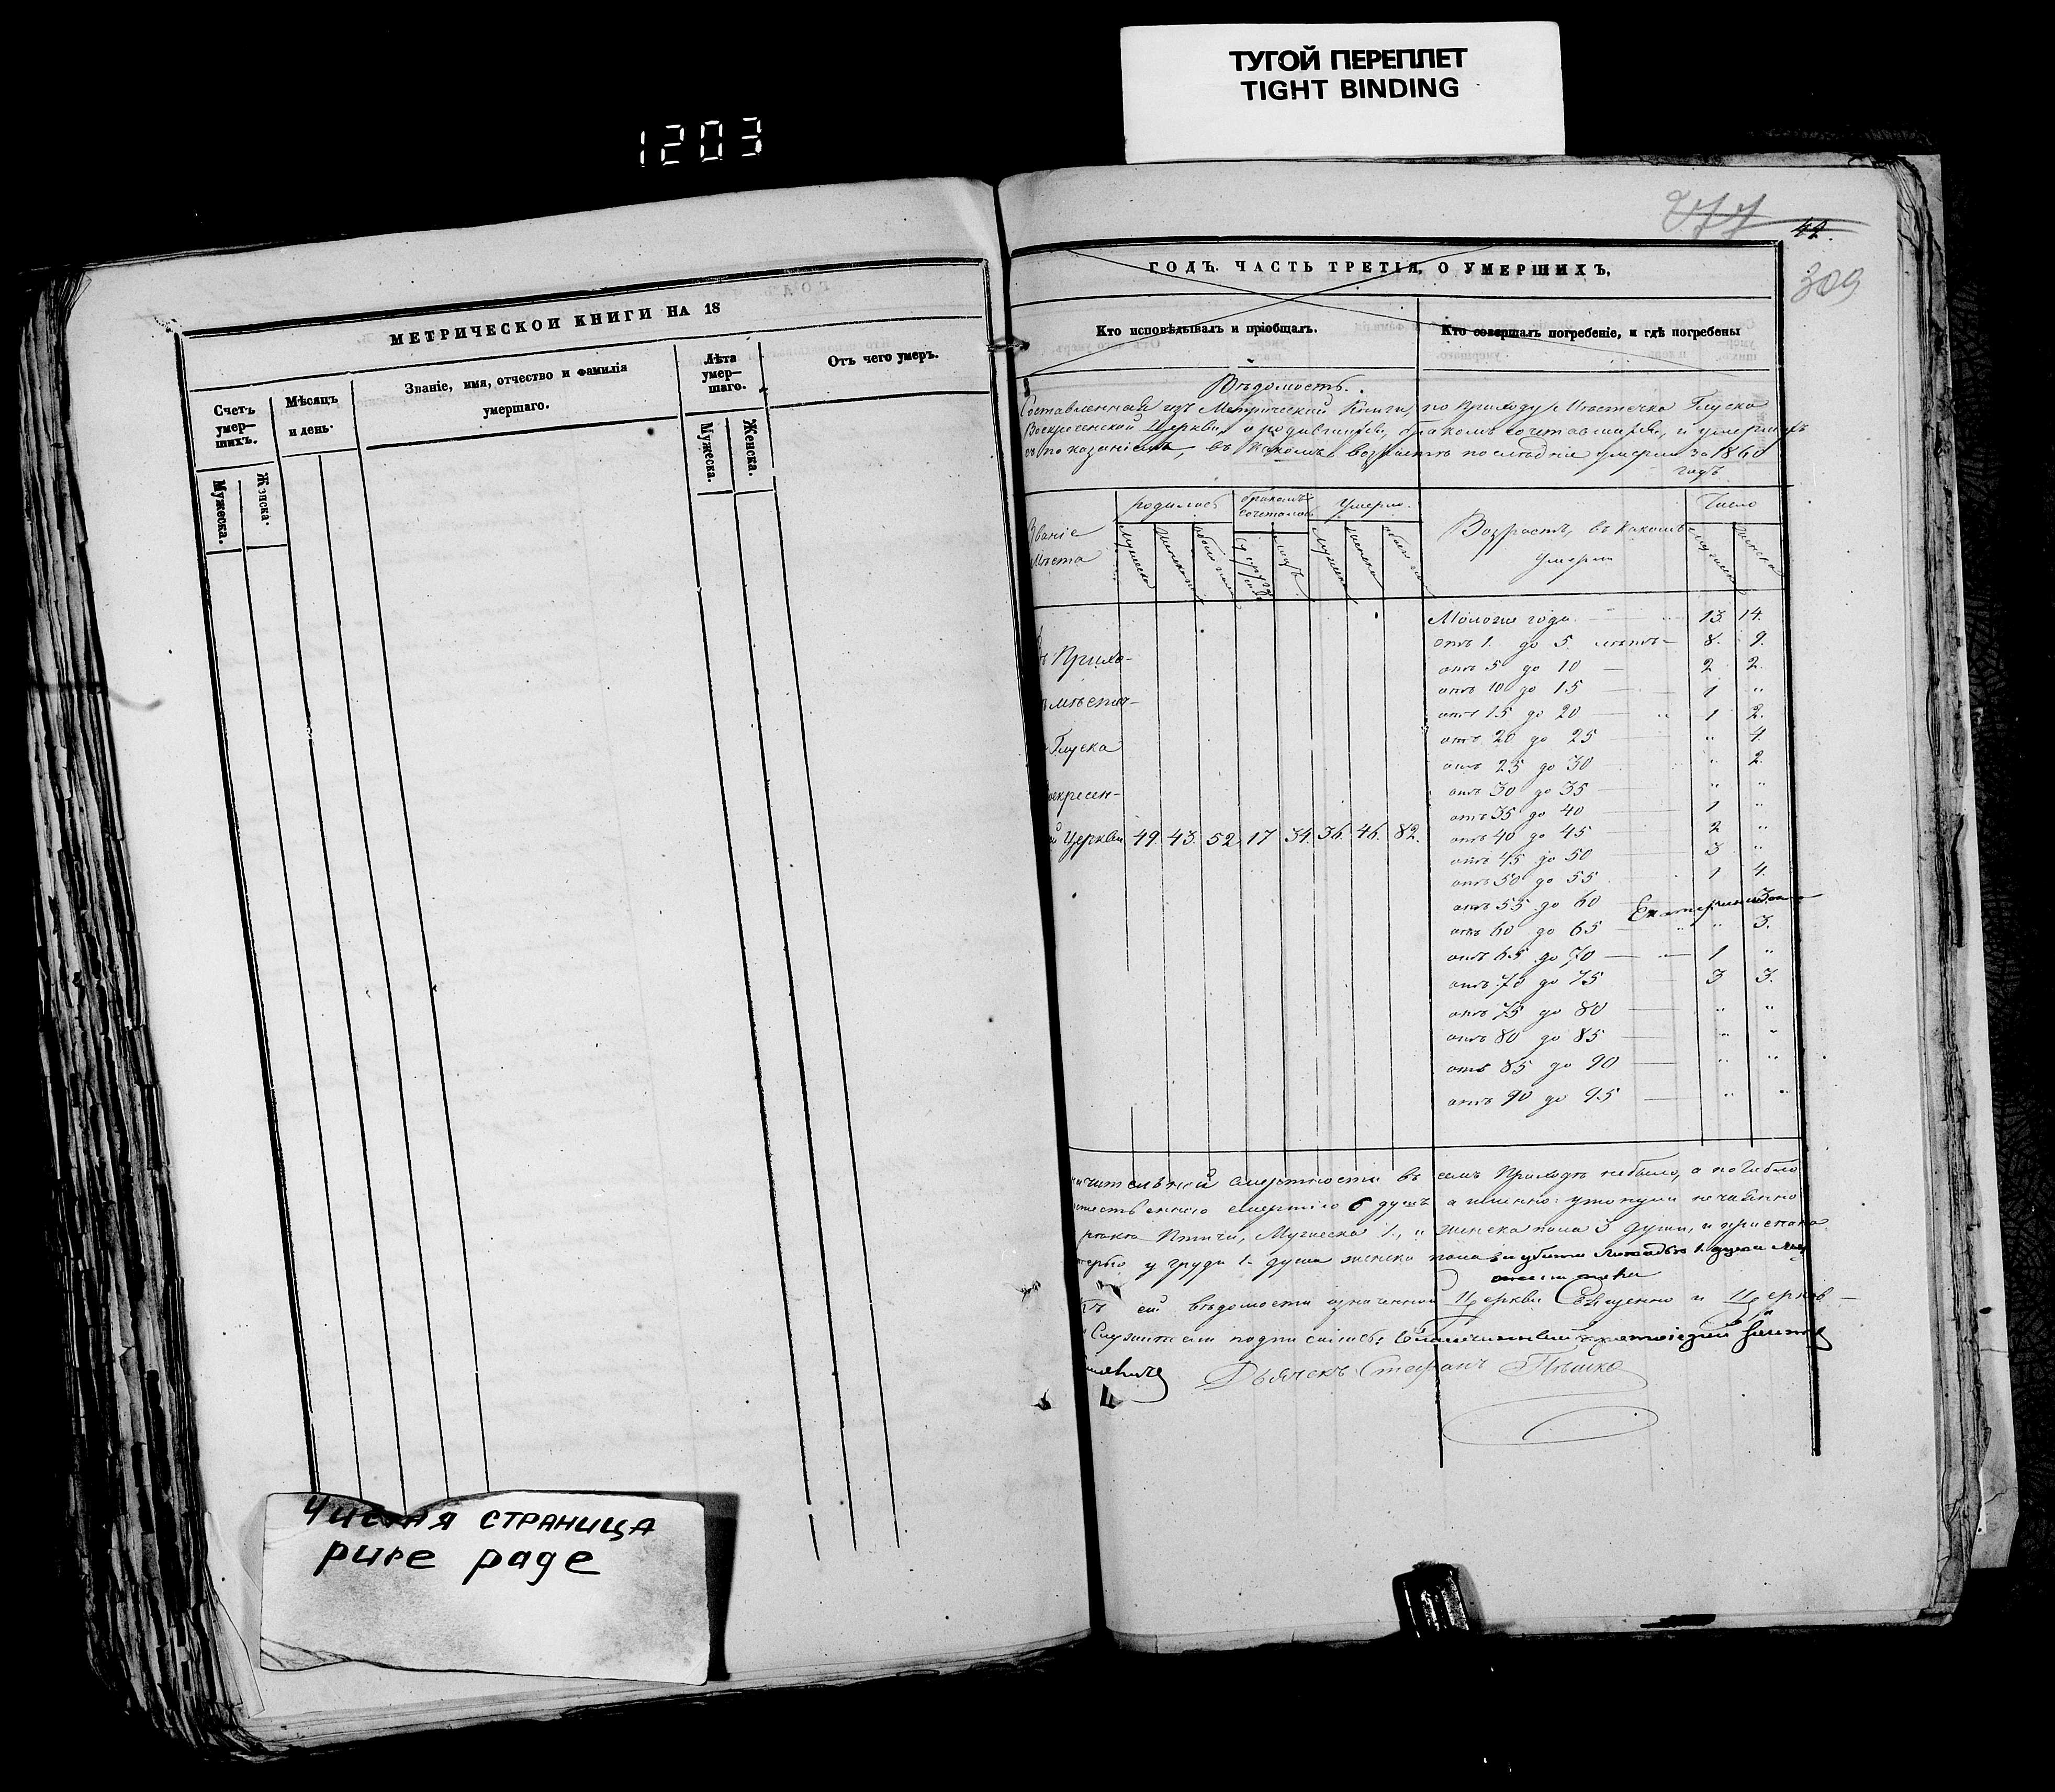 ТУГОЙ ПЕРЕПЛЕТ
TIGHT BINDING
1203
МЕТРИЧЕСКОЙ КНИГИ НА 18
Счетъ умер—шихъ.
Мужеска.
Женска.
Мѣсяцъ и день.
Званіе, имя, отчество и фамилія
умершаго.
Лѣта умер—шаго.
Мужеска.
Женска.
Отъ чего умеръ.
Чистая страница
pure page
277
42.
309
ГОДЪ. ЧАСТЬ ТРЕТІЯ, О УМЕРШИХЪ,
Кто исповѣдывалъ и пріобщалъ.
Кто совершалъ погребеніе, и гдѣ погребены
Вѣдомость.
Составленная изъ Метрической Книги, по приходу Мѣстечка Глуска
Воскресенской Церкви, о родившихся, бракомъ сочетавшихся, и умершихъ
съ показаніемъ, въ какомъ возрастѣ последніе умерли за 1860
годъ
Званіе
мѣста
родилось
бракомъ сочеталось
Умерло.
Возрастъ, въ какомъ
умерли
Число
Прихо-
мѣстеч-
Глуска
Воскресен-
Церкви 49. 43. 52 17 34. 36. 46. 82.
Моложе года 13. 14.
отъ 1. до 5. лѣтъ 8. 9.
отъ 5 до 10 2 2.
отъ 10 до 15 1 "
отъ 15 до 20 1 2.
отъ 20 до 25 " 4.
отъ 25 до 30 " 2.
отъ 30 до 35 " "
отъ 35 до 40 1 "
отъ 40 до 45 2 "
отъ 45 до 50 3 "
отъ 50 до 55 1 4.
отъ 55 до 60 3.
отъ 60 до 65 " 3.
отъ 65 до 70 1 "
отъ 70 до 75 3 3.
отъ 75 до 80 " "
отъ 80 до 85 " "
отъ 85 до 90 " "
отъ 90 до 95 " "
значительной смертности въ семъ Приходѣ небыло, а погибло
смертію 6 душъ а именно: утонули нечаянно
Птичи, Мужеска 1., Женска пола 3 души, и приспана
у груди 1. душа женска пола и убита лошадью 1. душа
Къ сей вѣдомости означенной Церкви Священно и Церков—
Служители подписались:
Дьячекъ Стефанъ Пѣшко